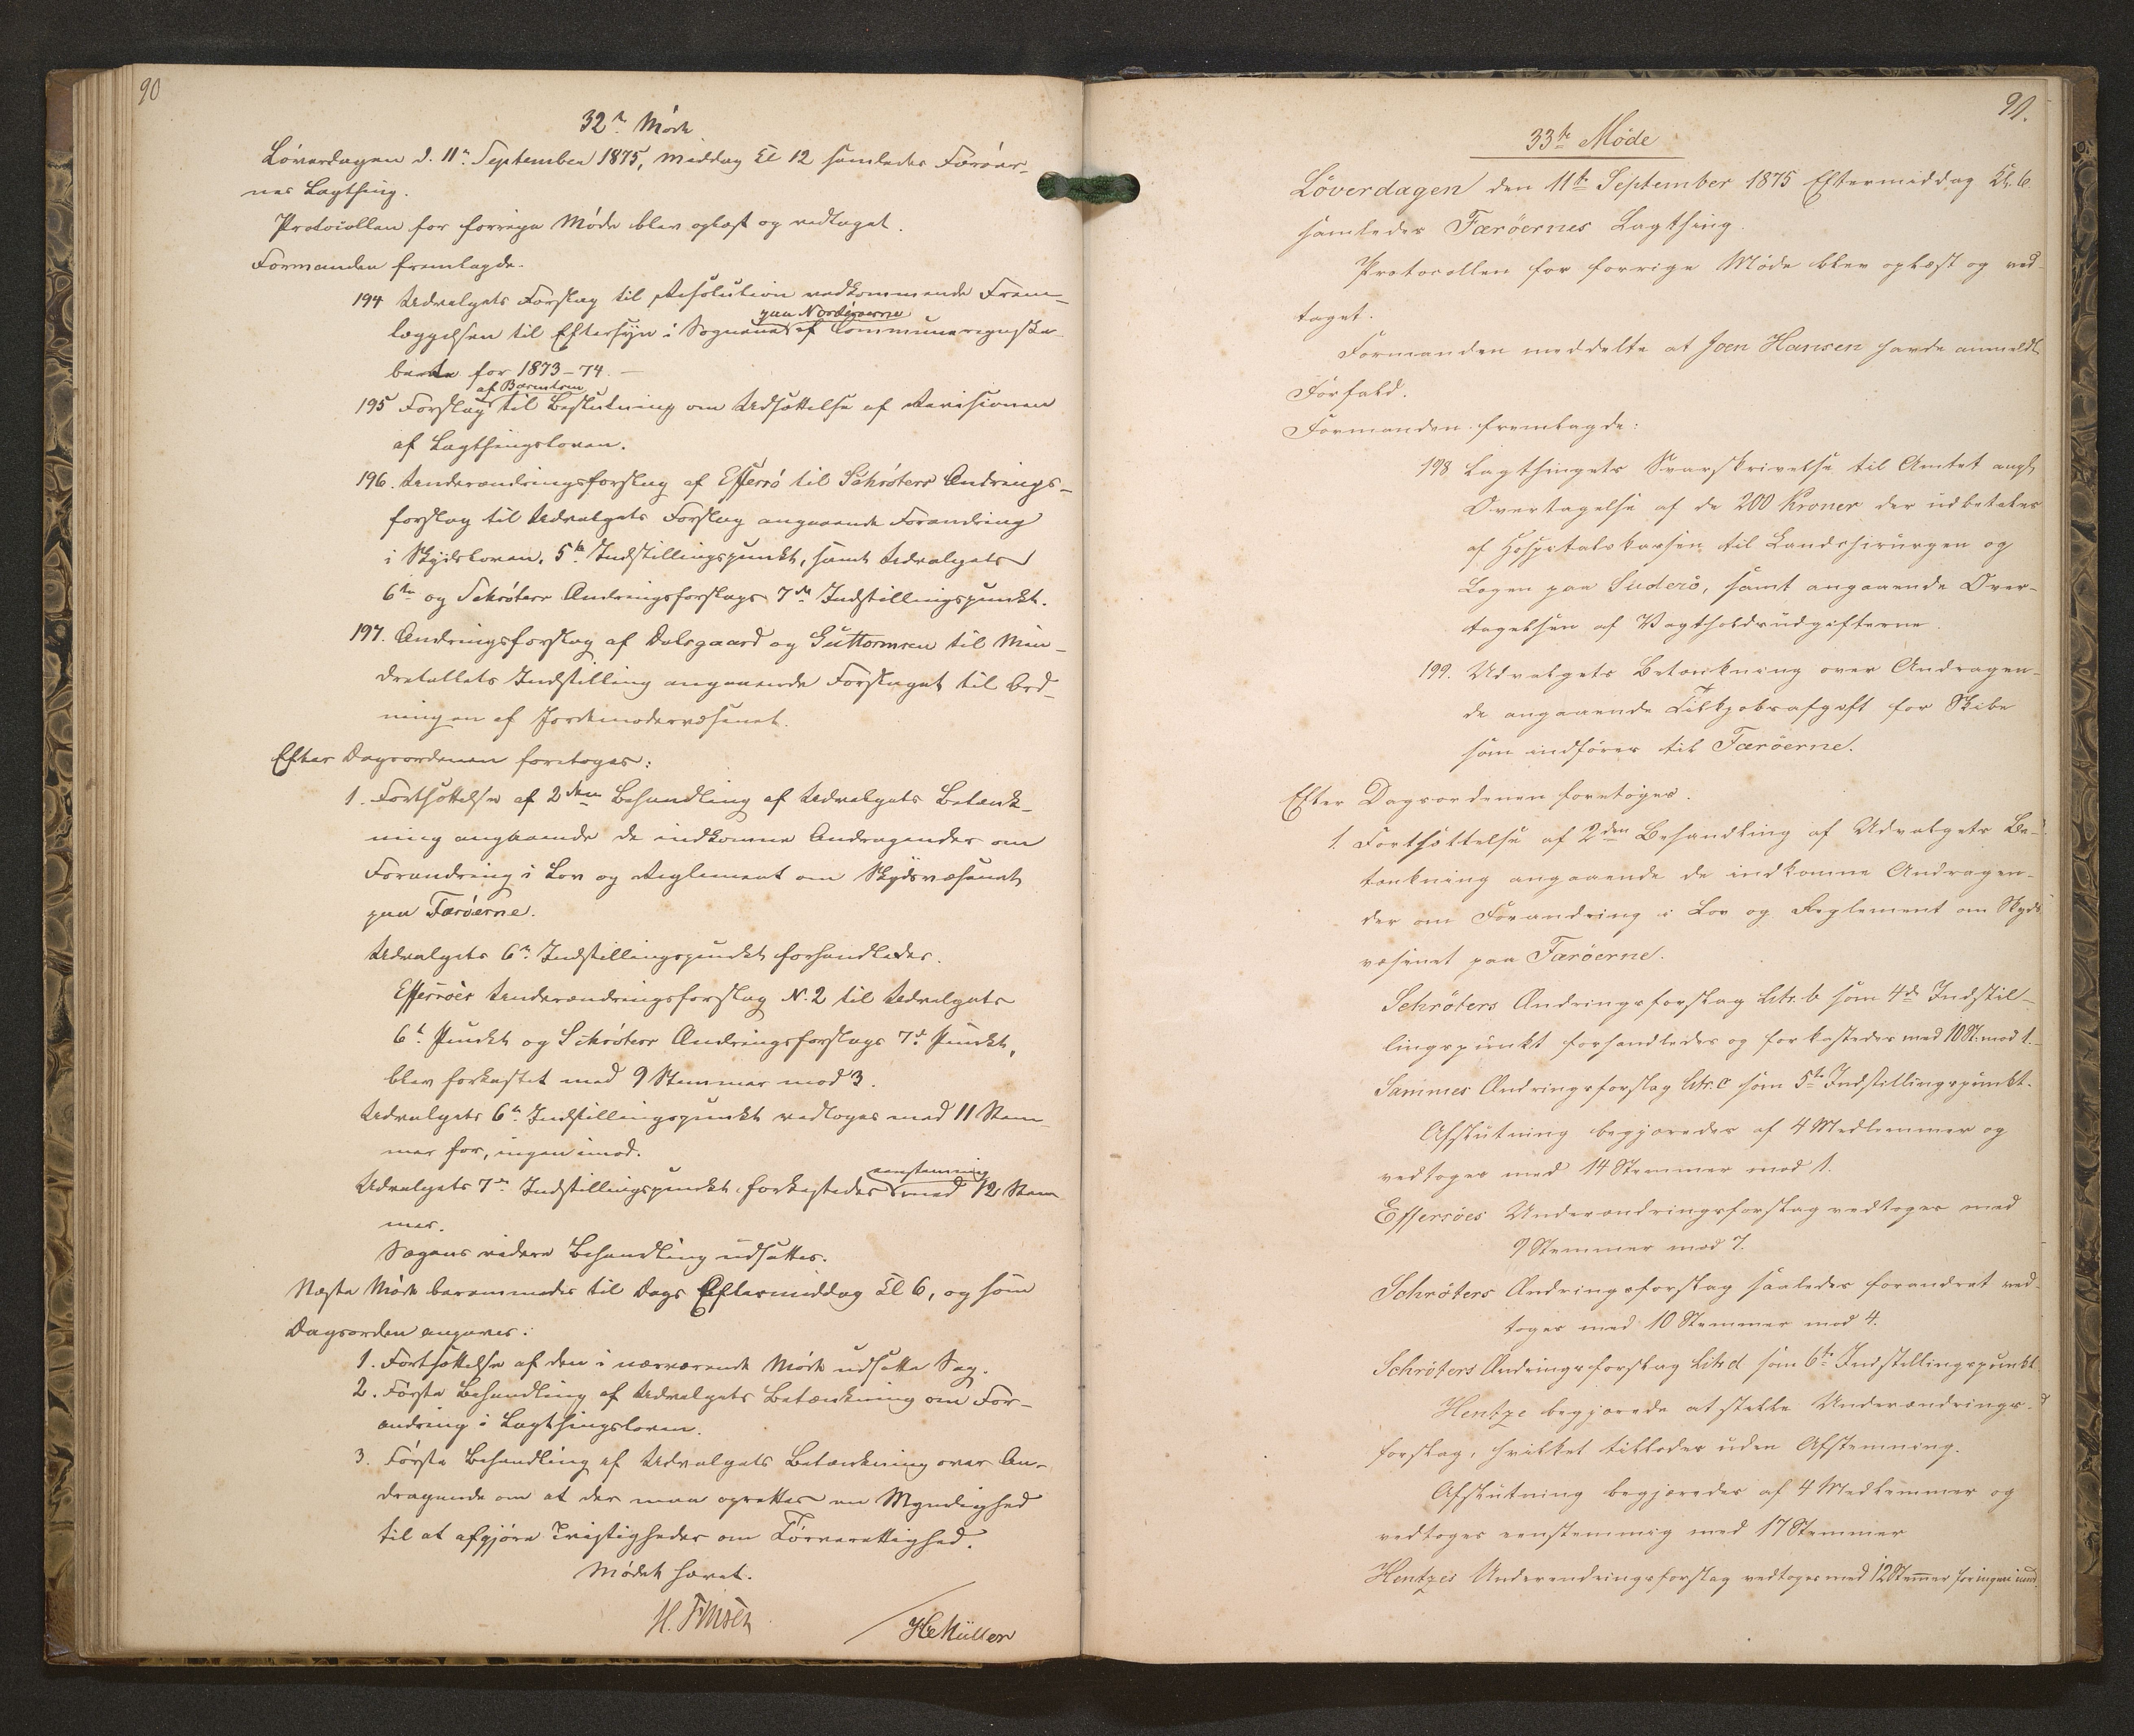 90
32te Møde
Löverdagen d. 11te September 1875, Middag Kl 12 samledes Færöer-
nes Lagthing.
Protocollen for forrige Möde blev oplæst og vedtaget.
Formanden fremlagde.
194 Udvalgets Forslag til Resolution vedkommende Frem-
paa Nordöerne
læggelsen til Eftersyn i Sognene af Communeregnska-
berne for 1873-74. -
af Bærentsen
195 Forslag til Beslutning om Udsættelse af Revisionen
af Lagthingsloven.
196. Underændringsforslag af Effersö til Schröters Ændrings-
forslag til Udvalgets Forslag angaaende Forandring
i Skydsloven, 5te Indstillingspunkt, samt Udvalgets
6te og Schröters Ændringsforslags 7de Indstillingspunkt.
197. Ændringsforslag af Dalsgaard og Guttormsen til Min-
dretallets Indstilling angaaende Forslaget til Ord-
ningen af Jordemodervæsenet.
Efter Dagsordenen foretoges:
1. Fortsættelse af 2den Behandling af Udvalgets Betænk-
ning angaaende de indkomne Andragender om
Forandring i Lov og Reglement om Skydsvæsenet
paa Færöerne.
Udvalgets 6te Indstillingspunkt forhandledes.
Effersöes Underændringsforslag N. 2 til Udvalgets
6te Punkt og Schröters Ændringsforslags 7de Punkt,
blev forkastet med 9 Stemmer mod 3.
Udvalgets 6te Indstillingspunkt vedtoges med 11 Stem-
mer for, ingen imod.
eenstemmig
Udvalgets 7de Indstillingspunkt forkastedes med 12 Stem-
mer.
Sagens videre Behandling udsattes.
Næste Möde berammedes til Dags Eftermiddag Kl 6, og som
Dagsorden angaves:
1. Fortsættelse af den i nærværende Möde udsatte Sag.
2. Förste Behandling af Udvalgets Betænkning om For-
andring i Lagthingsloven.
3. Förste Behandling af Udvalgets Betænkning over An-
dragende om at der maa oprettes en Myndighed
til at afgjöre Tvistigheder om Törverettighed.
Mödet hævet.
H. Finsen
HCMüller
91.
33te Møde
Löverdagen den 11te September 1875 Eftermiddag Kl. 6.
samledes Færöernes Lagthing.
Protocollen for forrige Möde blev oplæst og ved-
taget.
Formanden meddelte at Joen Hansen havde anmeldt
Forfald.
Formanden fremlagde:
198 Lagthingets Svarskrivelse til Amtet angh
Overtagelse af de 200 Kroner der udbetales
af Hospitalskassen til Landschirurgen og
Lægen paa Suderö, samt angaaende Over-
tagelsen af Vagtholdsudgifterne.
199. Udvalgets Betænkning over Andragen-
de angaaende Tilkjøbsafgift for Skibe
som indföres til Færöerne.
Efter Dagsordenen foretoges.
1. Fortsættelse af 2den Behandling af Udvalgets Be-
tænkning angaaende de indkomne Andragen-
der om Forandring i Lov og Reglement om Skyds
væsenet paa Færöerne.
Schröters Ændringsforslag Litr. b som 4de Indstil-
lingspunkt forhandledes og forkastedes med 10 St. mod 1.
Sammes Ændringsforslag Litr. c som 5te Indstillingspunkt.
Afslutning begjæredes af 4 Medlemmer og
vedtoges med 14 Stemmer mod 1.
Effersöes Underændringsforslag vedtoges med
9 Stemmer mod 7.
Schröters Ændringsforslag saaledes forandret ved-
toges med 10 Stemmer mod 4.
Schröters Ændringsforslag Litr d som 6te Indstillingspunkt
Hentze begjærede at stille Underændrings-
forslag, hvilket tillodes uden Afstemning.
Afslutning begjæredes af 4 Medlemmer og
vedtoges eenstemmig med 17 Stemmer
Hentzes Underændringsforslag vedtoges med 12 Stemmer for ingen imod.